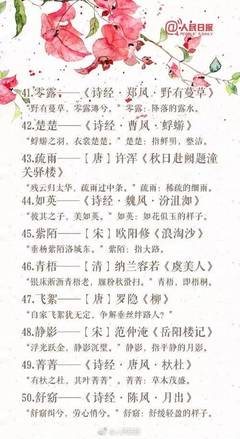 @人民日报
41.零露——《诗经·郑风·野有蔓草》
“野有蔓草，零露漙兮。”零露：降落的露水。
42.楚楚——《诗经·曹风·蜉蝣》
“蜉蝣之羽，衣裳楚楚。”楚楚：指鲜明，整洁。
43.疏雨——【唐】许浑《秋日赴阙题潼
关驿楼》
“残云归太华，疏雨过中条。”疏雨：稀疏的细雨。
44.如英——《诗经·魏风·汾沮洳》
“彼其之子，美如英。”如英：如花似玉的样子。
45.紫陌——【宋】欧阳修《浪淘沙》
“垂杨紫陌洛城东。”紫陌：指大路。
46.青梧——【清】纳兰容若《虞美人》
“银床淅沥青梧老，屧粉秋蛩扫。”青梧，即梧桐。
47.飞絮——【唐】罗隐《柳》
“自家飞絮犹无定，争解垂丝绊路人？”
48.静影——【宋】范仲淹《岳阳楼记》
“浮光跃金，静影沉璧。”静影：指平静的月影。
49.菁菁——《诗经·唐风·杕杜》
“有杕之杜，其叶菁菁”。菁菁：草木茂盛。
50.舒窈——《诗经·陈风·月出》
“舒窈纠兮，劳心悄兮。”舒窈：舒缓轻盈的样子。